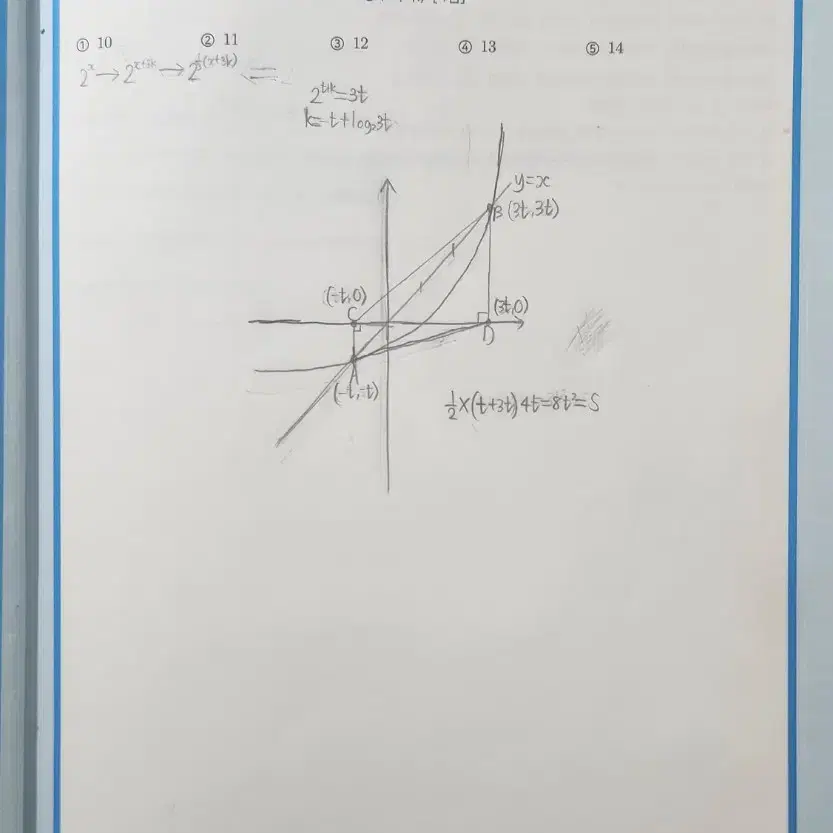 ① 10 ② 11 ③ 12 ④ 13 ⑤ 14
2^x → 2^{x+3k} → 2^{\frac{1}{3}(x+3k)} =
2^{t+k}=3t
k=-t+log₂3t
y=x
B(3t,3t)
(-t,0) (3t,0)
C D
A
(-t,-t)
½×(t+3t)4t=8t²=S